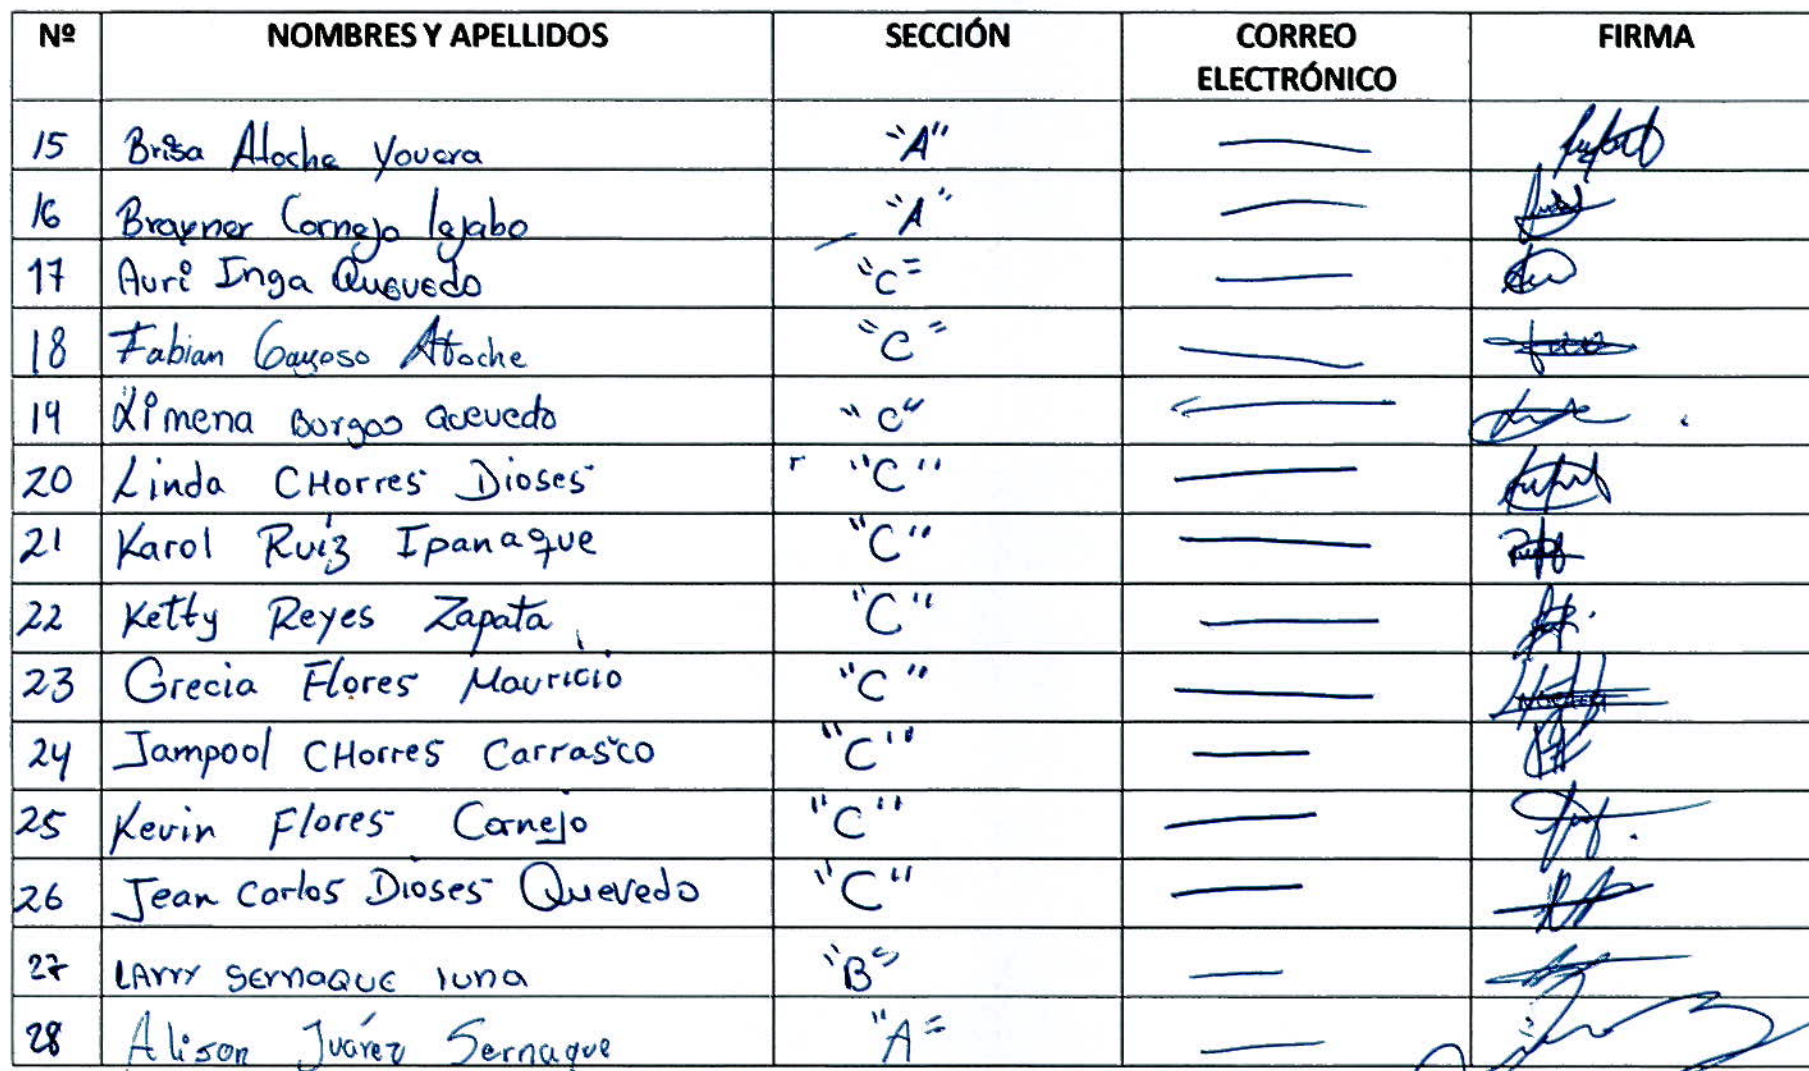 Nº NOMBRES Y APELLIDOS SECCIÓN CORREO ELECTRÓNICO FIRMA
15 Brisa Atoche Yovera "A"
16 Brayner Cornejo "A"
17 Auri Inga Quevedo "C"
18 Fabian Gayoso Atoche "C"
19 Ximena Burgos Quevedo "C"
20 Linda CHorres Dioses "C"
21 Karol Ruiz Ipanaque "C"
22 Ketty Reyes Zapata "C"
23 Grecia Flores Mauricio "C"
24 Jampool CHorres Carrasco "C"
25 Kevin Flores Cornejo "C"
26 Jean Carlos Dioses Quevedo "C"
27 LArry sernaque luna "B"
28 Alison Juárez Sernaque "A"